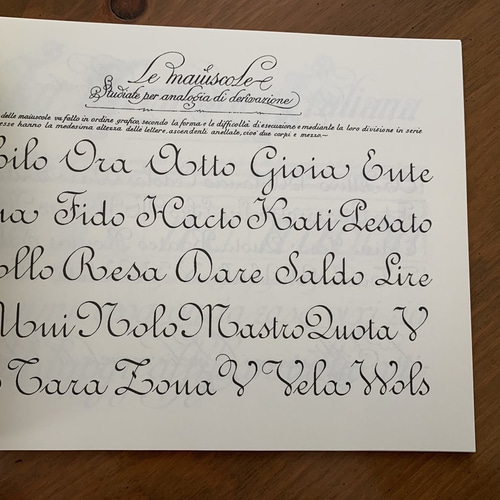 Le maiuscole
Studiate per analogia di derivazione
delle maiuscole va fatto in ordine grafico, secondo la forma e le difficoltà di esecuzione e mediante la loro divisione in serie
esse hanno la medesima altezza delle lettere, ascendenti anellate, cioè due corpi e mezzo.~
Ora Atto Gioia Eute
Fido Hacto Kati Pesato
Resa Dare Saldo Lire
Uni Nolo Mastro Quota V
Tara Zona V Vela Wols